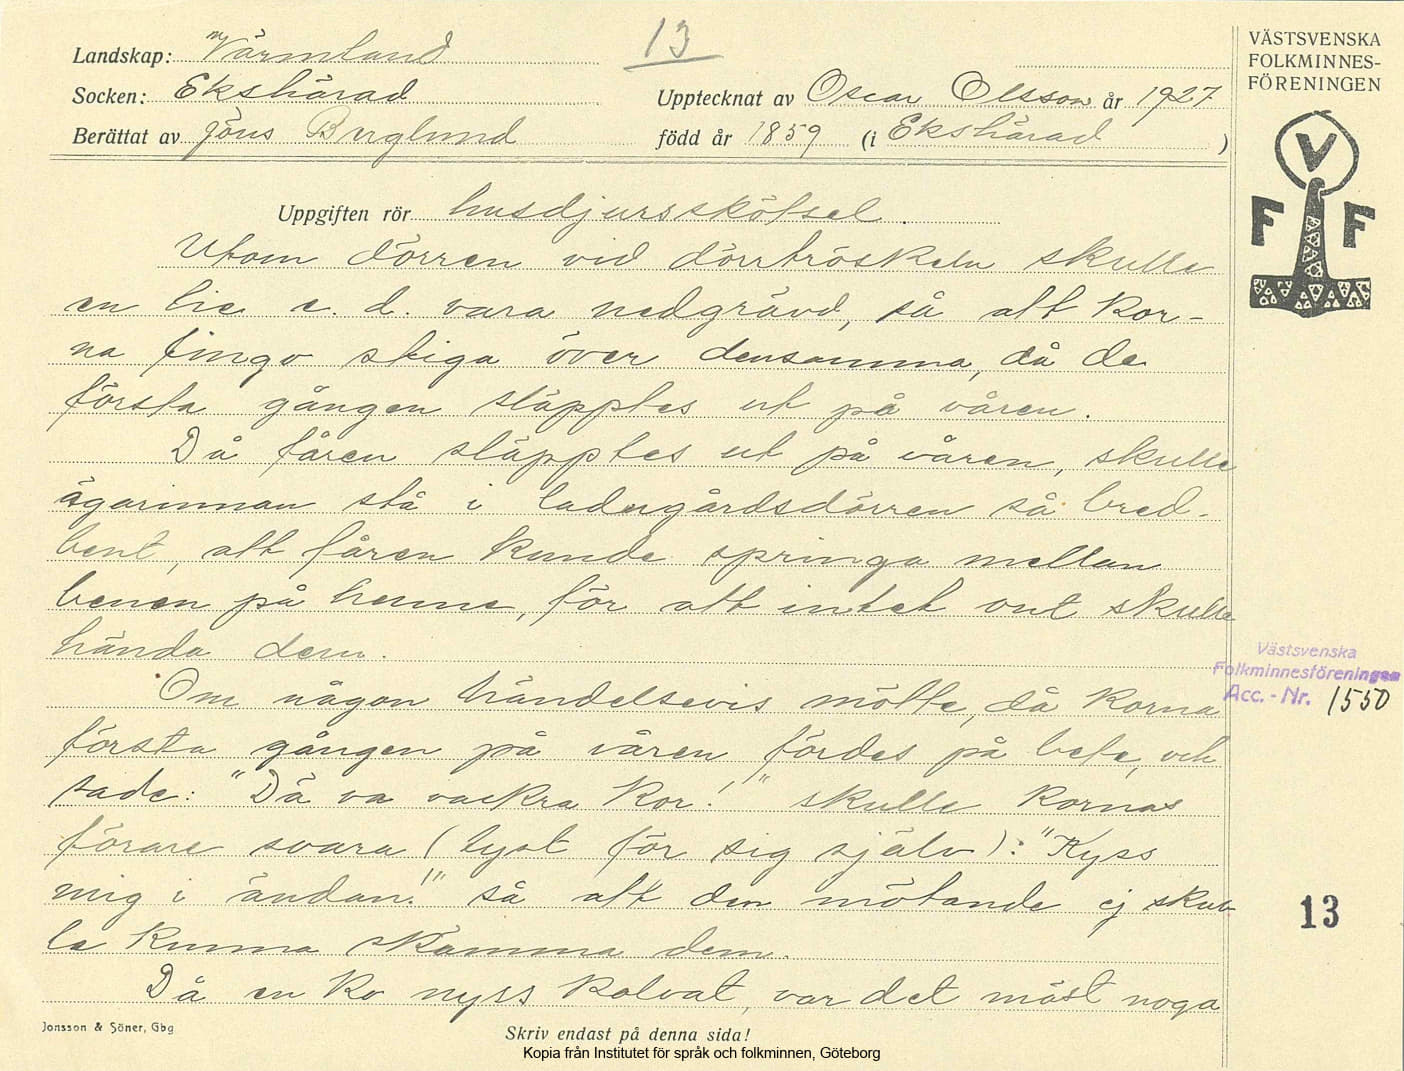 13
Landskap: Värmland
Socken: Ekshärad
Upptecknat av Oscar Olsson år 1927
Berättat av Jöns Berglund
född år 1859 (i Ekshärad )
VÄSTSVENSKA
FOLKMINNES-
FÖRENINGEN
V
F F
Uppgiften rör husdjursskötsel.
Utom dörren vid dörrtröskeln skulle
en lie e. d. vara nedgrävd, så att kor-
na fingo stiga över densamma, då de
första gången släpptes ut på våren.
Då fåren släpptes ut på våren, skulle
ägarinnan stå i ladugårdsdörren så bred-
bent, att fåren kunde springa mellan
benen på henne, för att intet ont skulle
hända dem.
Om någon händelsevis mötte, då korna
första gången på våren fördes på bete, och
sade: "Dä va vackra kor!" skulle kornas
förare svara (tyst för sig själv): "Kyss
mig i ändan!" så att den mötande ej skul
le kunna skämma dem.
Då en ko nyss kalvat, var det mäst noga
Västsvenska
Folkminnesföreningen
Acc. - Nr. 1550
13
Jonsson & Söner, Gbg
Skriv endast på denna sida!
Kopia från Institutet för språk och folkminnen, Göteborg